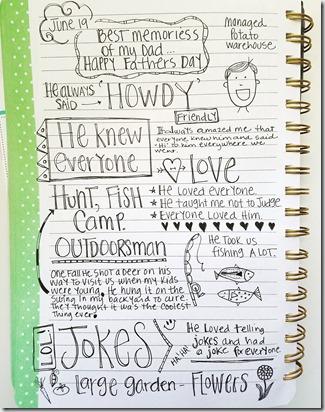 June 19
Best memoriess
of my Dad...
Happy Fathers Day
managed
Potato
warehouse
He always
said → Howdy
Friendly
He knew
everyone
It always amazed me that
everyone knew him and said
"Hi" to him everywhere we
went.
Love
★He loved everyone.
★He taught me not to Judge
★Everyone Loved Him.
Hunt, Fish
Camp.
OUTDOORSman
He Took us
fishing A LOT.
One fall He shot a deer on his
way to visit us when my kids
were young. He hung it on the
swing in my backyard to cure.
They thought it was the coolest
Thing ever!
LOL!
Jokes
HA HA!
He Loved telling
Jokes and had
a joke for everyone.
Large garden - Flowers